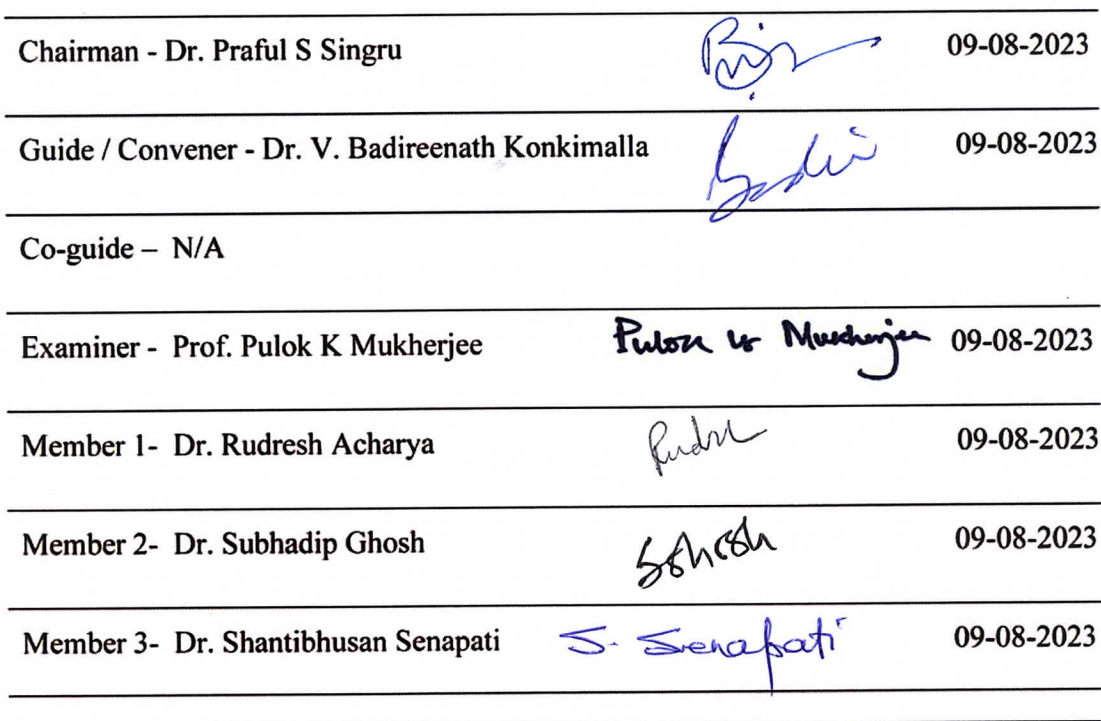 Chairman - Dr. Praful S Singru 09-08-2023
Guide / Convener - Dr. V. Badireenath Konkimalla 09-08-2023
Co-guide – N/A
Examiner - Prof. Pulok K Mukherjee Pulok K Mukherjee 09-08-2023
Member 1- Dr. Rudresh Acharya 09-08-2023
Member 2- Dr. Subhadip Ghosh SGhosh 09-08-2023
Member 3- Dr. Shantibhusan Senapati S. Senapati 09-08-2023